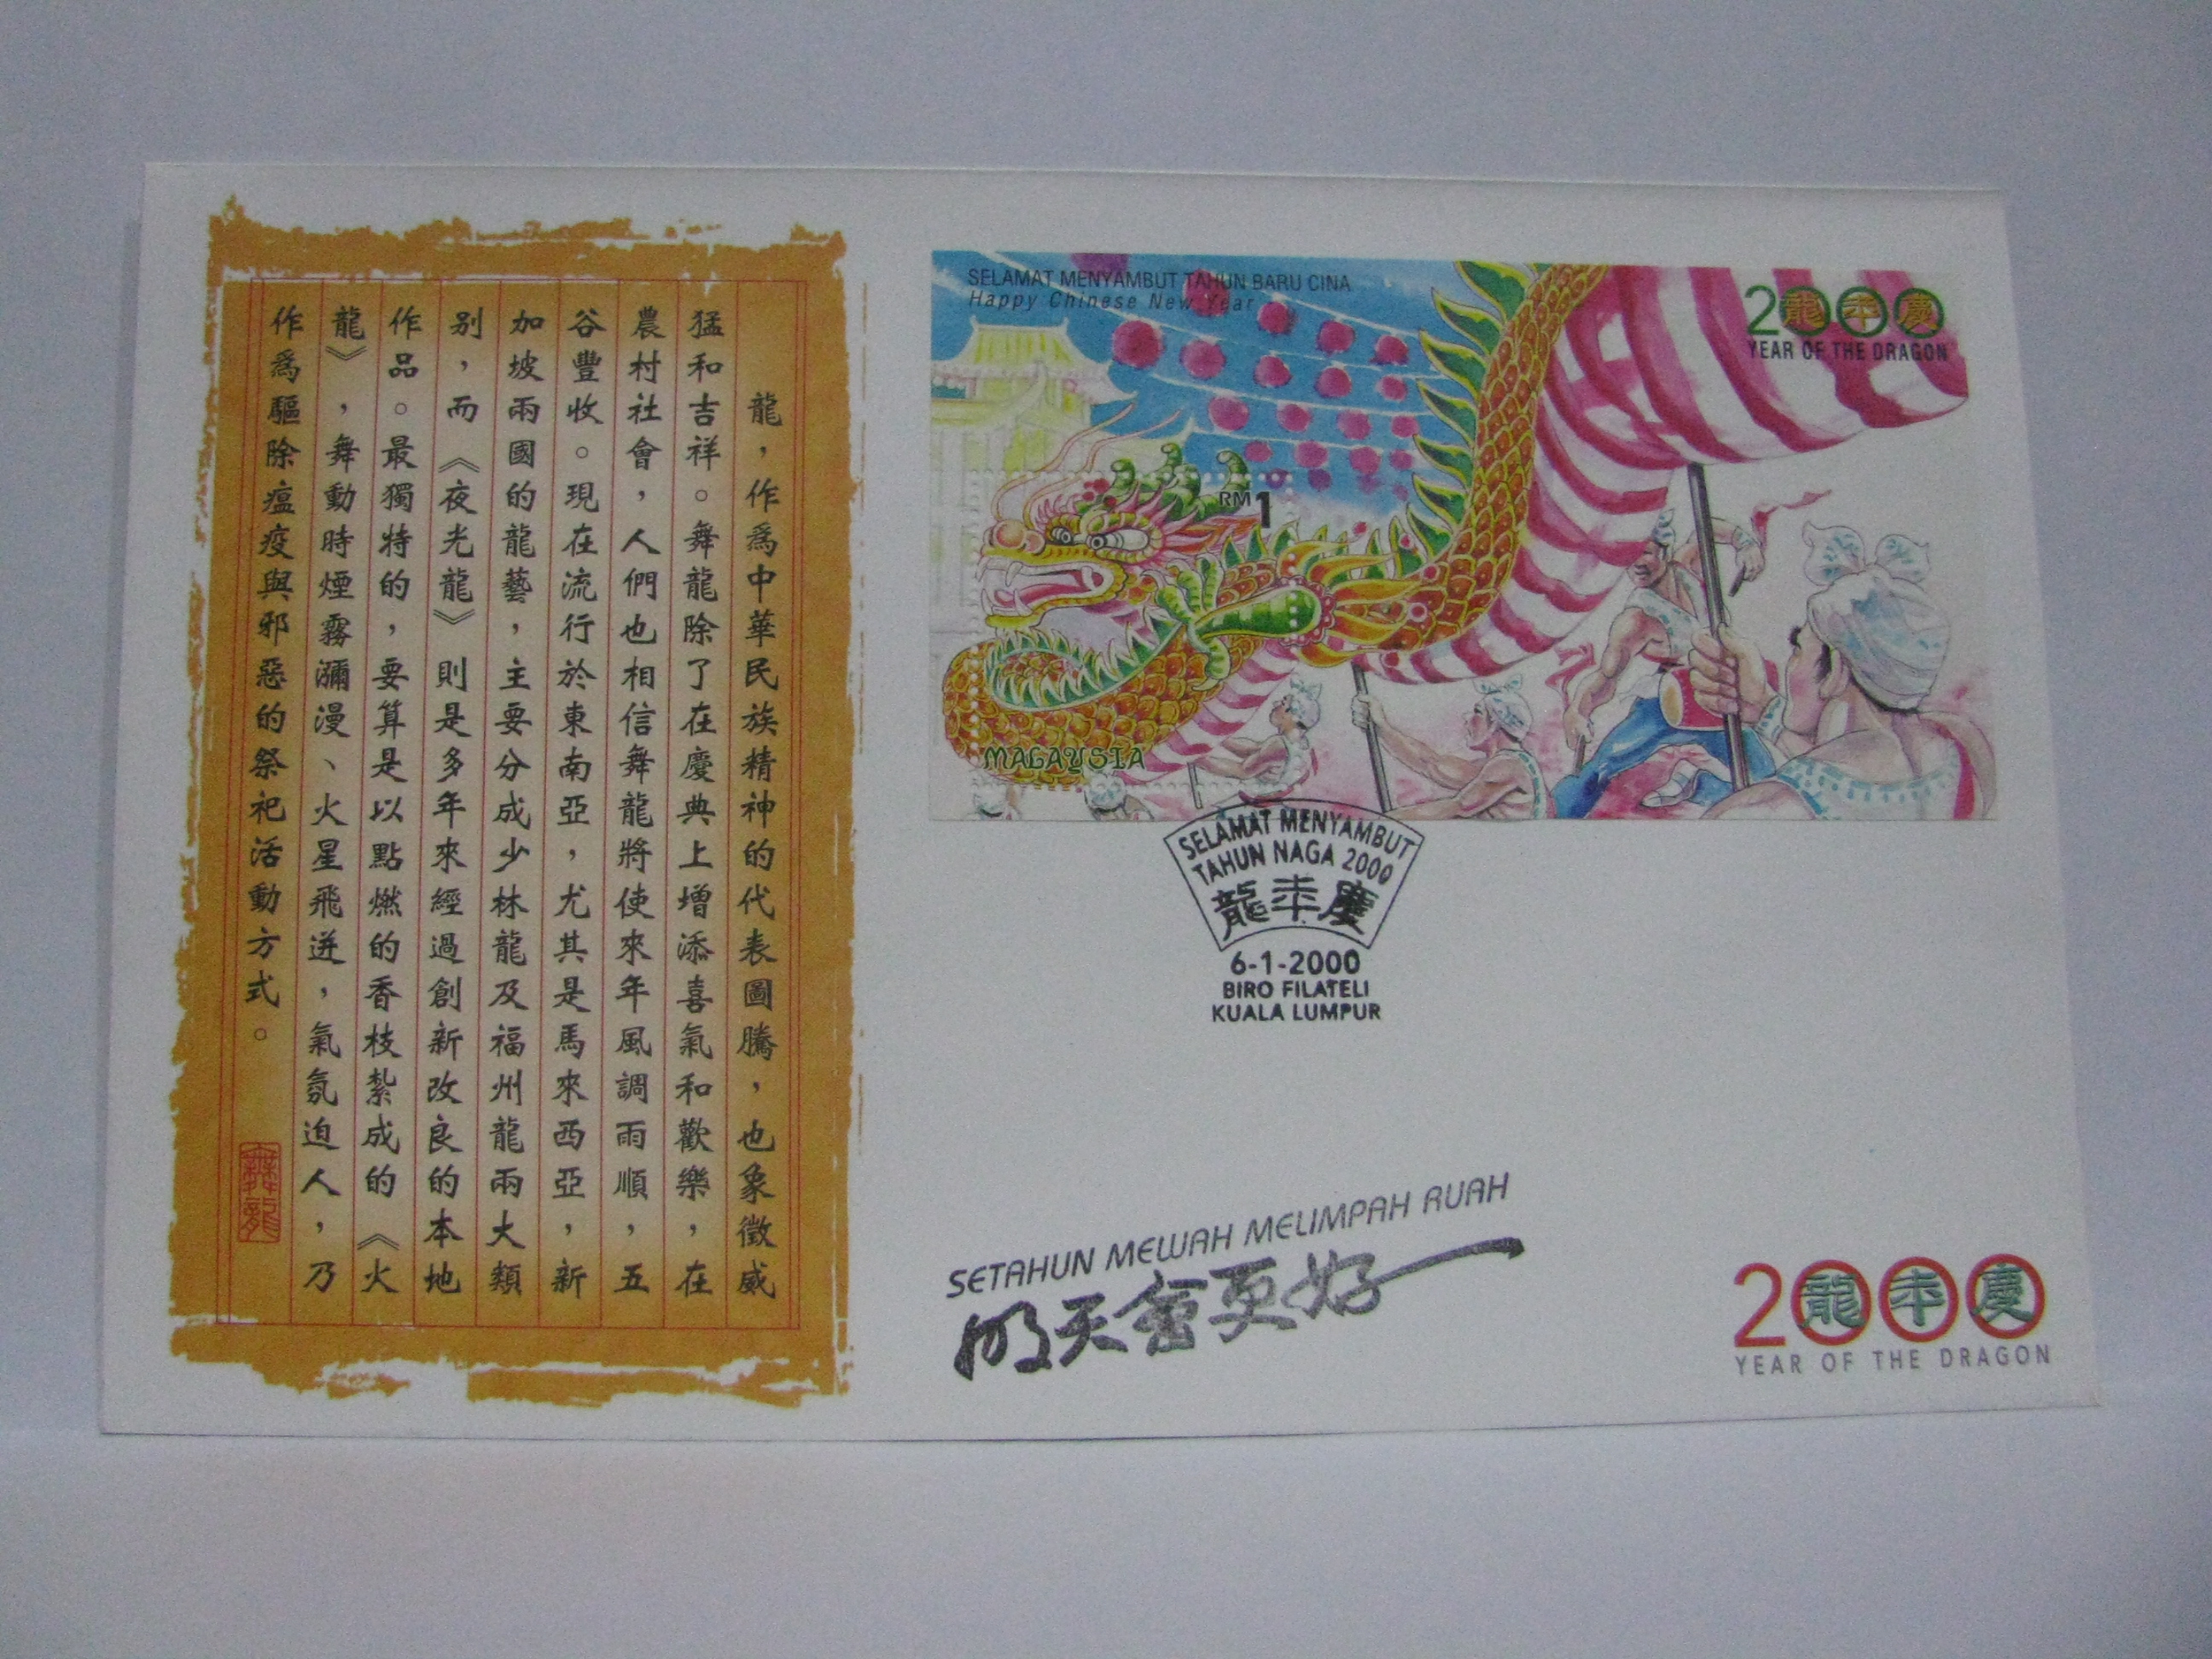 龍，作爲中華民族精神的代表圖騰，也象徵威
猛和吉祥。舞龍除了在慶典上增添喜氣和歡樂，在
農村社會，人們也相信舞龍將使來年風調雨順，五
谷豐收。現在流行於東南亞，尤其是馬來西亞，新
加坡兩國的龍藝，主要分成少林龍及福州龍兩大類
別，而《夜光龍》則是多年來經過創新改良的本地
作品。最獨特的，要算是以點燃的香枝紮成的《火
龍》，舞動時煙霧瀰漫、火星飛迸，氣氛迫人，乃
作爲驅除瘟疫與邪惡的祭祀活動方式。
舞龍
SELAMAT MENYAMBUT TAHUN BARU CINA
Happy Chinese New Year
2龍年慶
YEAR OF THE DRAGON
RM1
MALAYSIA
SELAMAT MENYAMBUT
TAHUN NAGA 2000
龍年慶
6-1-2000
BIRO FILATELI
KUALA LUMPUR
SETAHUN MEWAH MELIMPAH RUAH
明天會更好
2龍年慶
YEAR OF THE DRAGON